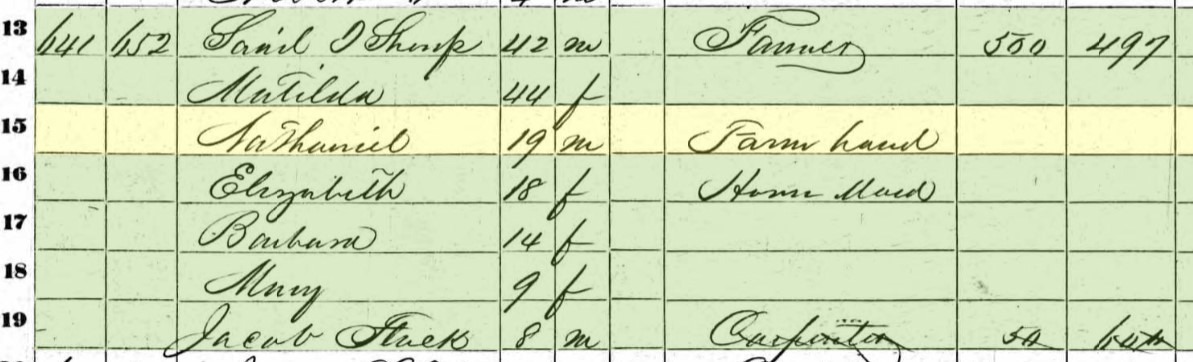 13 641 652 Saml D Sharp 42 m Farmer 500 497
14 Matilda 44 f
15 Nathaniel 19 m Farm hand
16 Elizabeth 18 f House Maid
17 Barbara 14 f
18 Mary 9 f
19 Jacob Fluck 8 m Carpenter 50